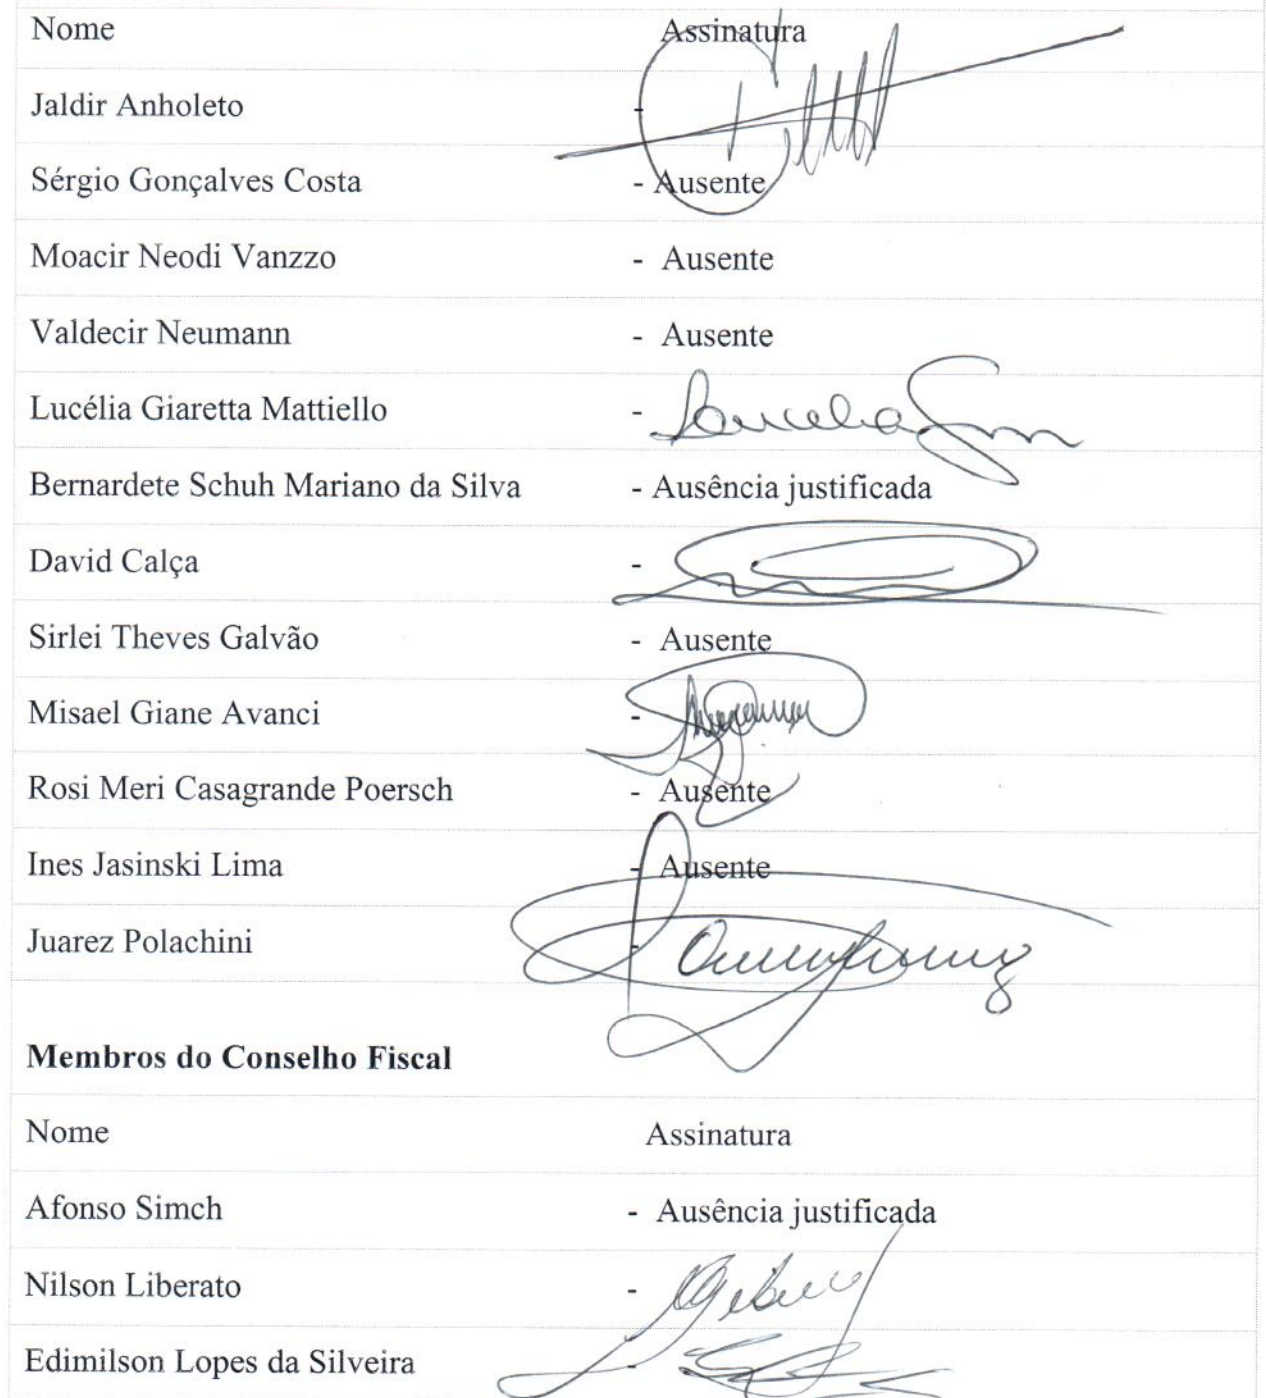 Nome Assinatura
Jaldir Anholeto -
Sérgio Gonçalves Costa - Ausente
Moacir Neodi Vanzzo - Ausente
Valdecir Neumann - Ausente
Lucélia Giaretta Mattiello -
Bernardete Schuh Mariano da Silva - Ausência justificada
David Calça -
Sirlei Theves Galvão - Ausente
Misael Giane Avanci -
Rosi Meri Casagrande Poersch - Ausente
Ines Jasinski Lima - Ausente
Juarez Polachini -
Membros do Conselho Fiscal
Nome Assinatura
Afonso Simch - Ausência justificada
Nilson Liberato -
Edimilson Lopes da Silveira -